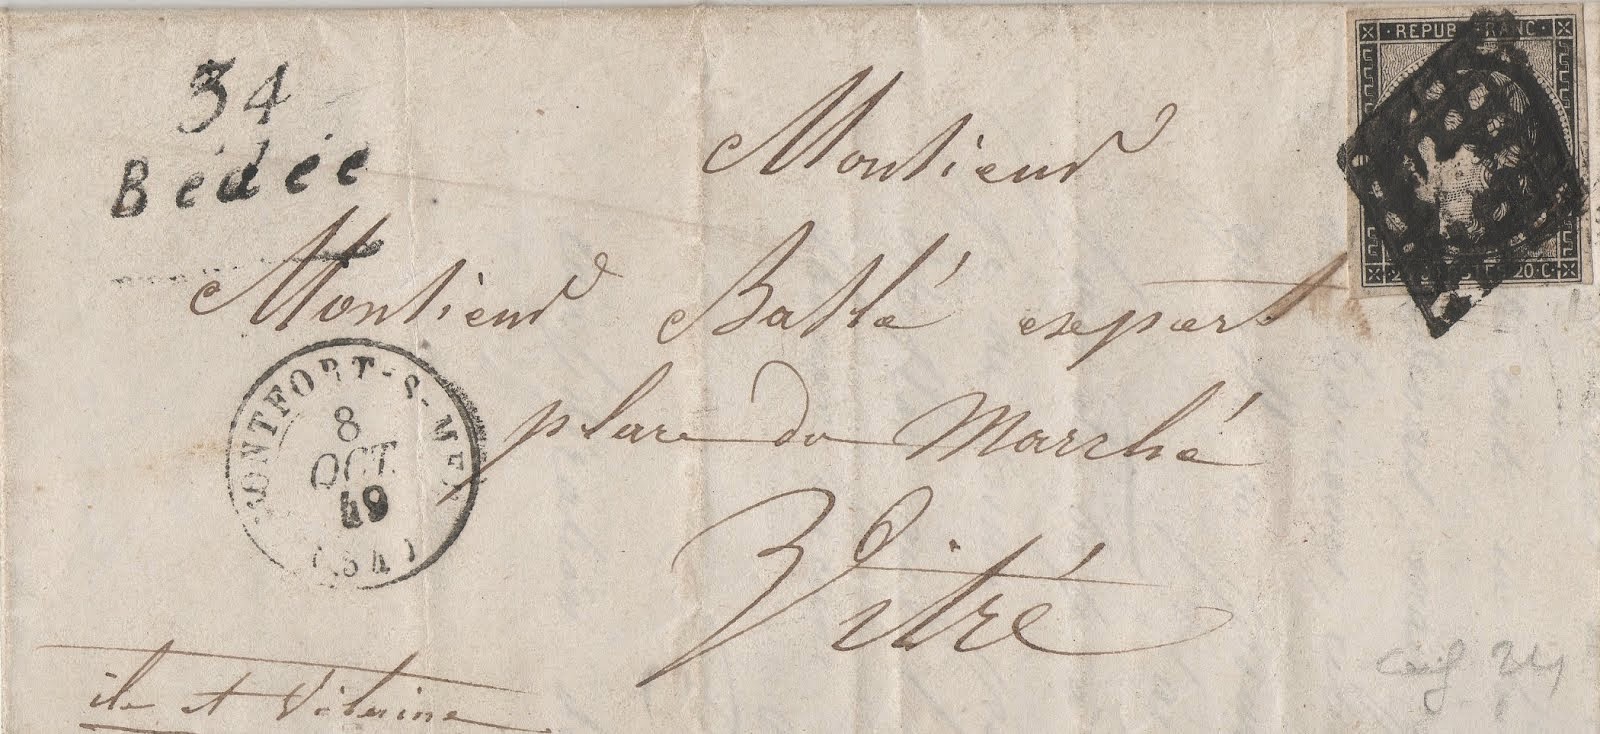 34
Bédée
REPUB FRANC
20 C
Monsieur
Monsieur Batlé expert
place du Marché
Vitré
MONTFORT-S-MEU
8
OCT
49
(34)
ile et Vilaine